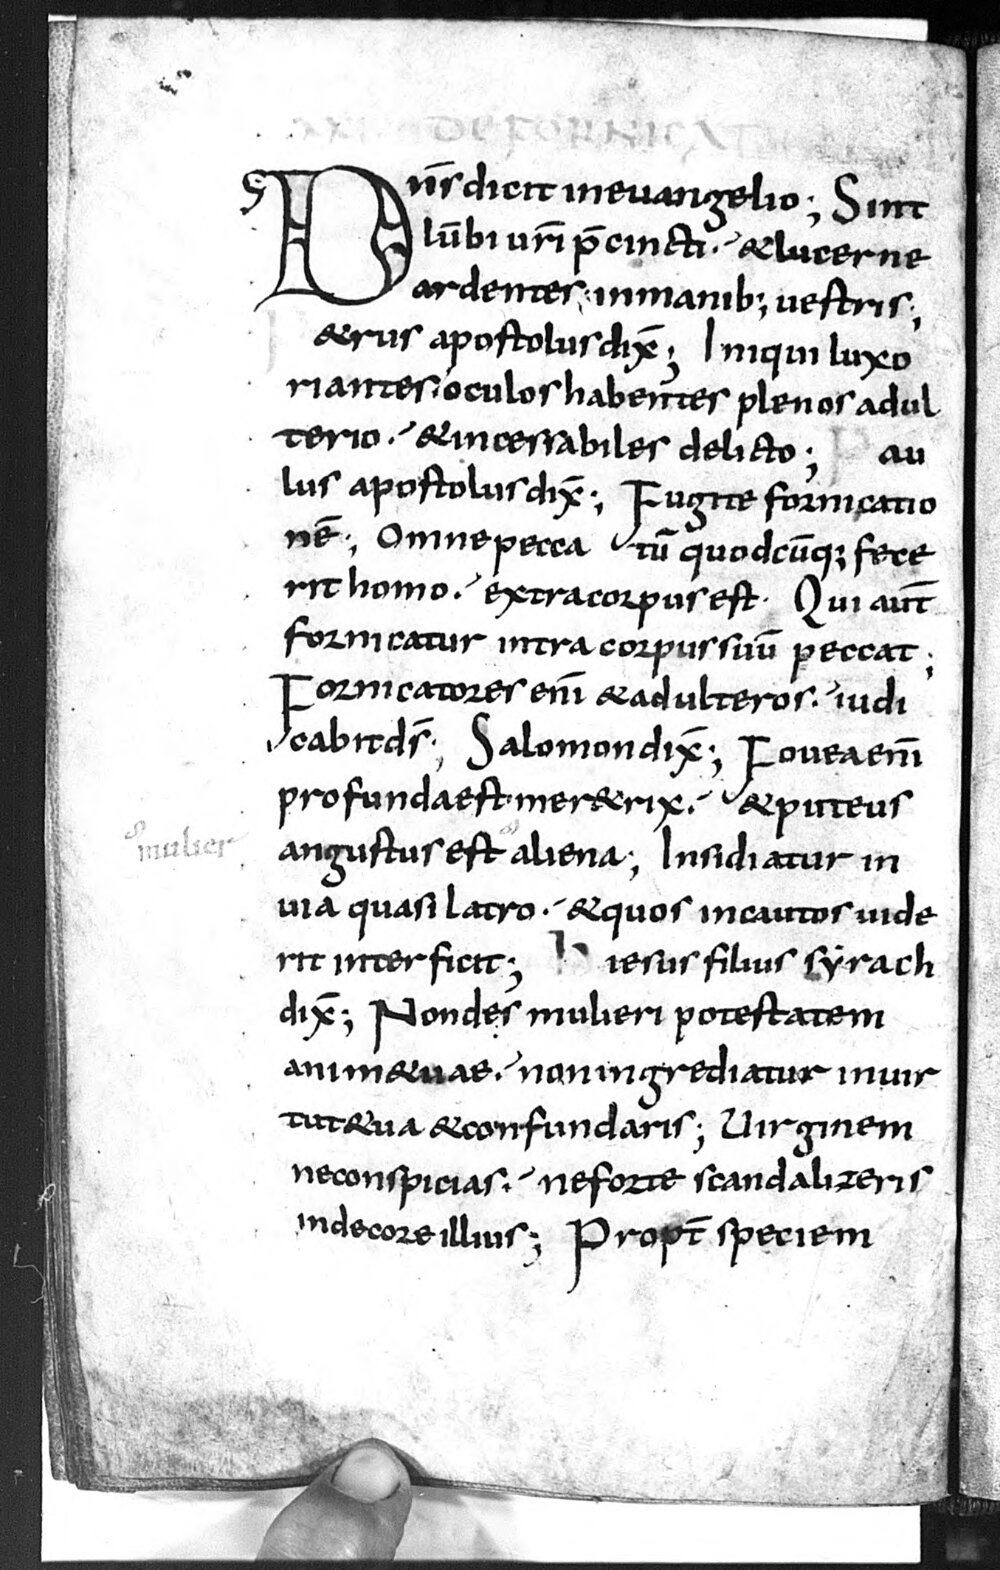 DE FORNICAT
Dn̄s dicit in euangelio; Sint
lūbi ur̄i p̄cincti. & lucerne
ardentes in manib; uestris;
&rus apostolus dix̄; Iniqui luxo
riantes oculos habentes plenos adul
terio. & incessabiles delicto; Pau
lus apostolus dix̄; Fugite fornicatio
nē; Omne pecca tū quodcūq; fece
rit homo. extra corpus est. Qui aut̄
fornicatur intra corpus suū peccat;
Fornicatores enī & adulteros. iudi
cabit ds̄; Salomon dix̄; Fouea enī
profunda est mer&rix. & puteus
mulier
angustus est aliena; Insidiatur in
uia quasi latro. & quos incautos uide
rit interficit; hiesus filius syrach
dix̄; Non des mulieri potestatem
anim&uae. non ingrediatur in uir
tut&ua & confundaris; Uirginem
ne conspicias. ne forte scandalizeris
in decore illius; Propt̄ speciem